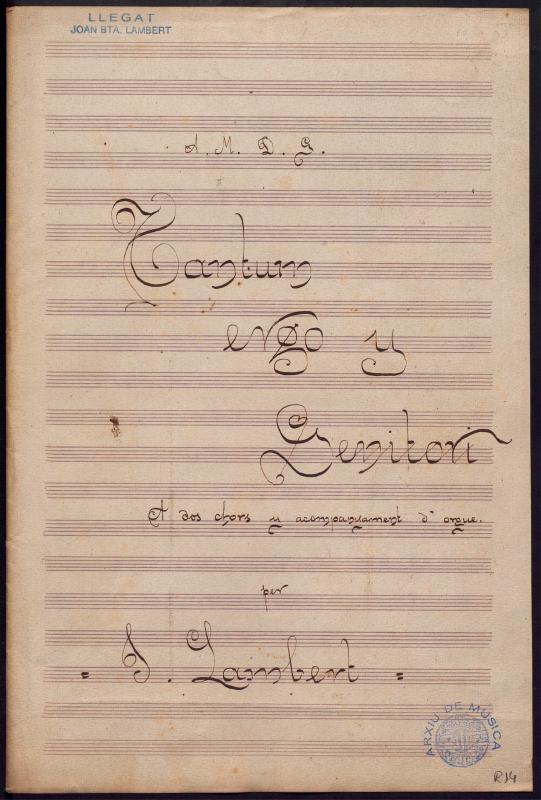 LLEGAT
JOAN BTA. LAMBERT
A. M. D. G.
Tantum
ergo y
Genitori
A dos chors y acompanyament d'orgue.
per
= J. Lambert =
ARXIU DE MÚSICA
R14